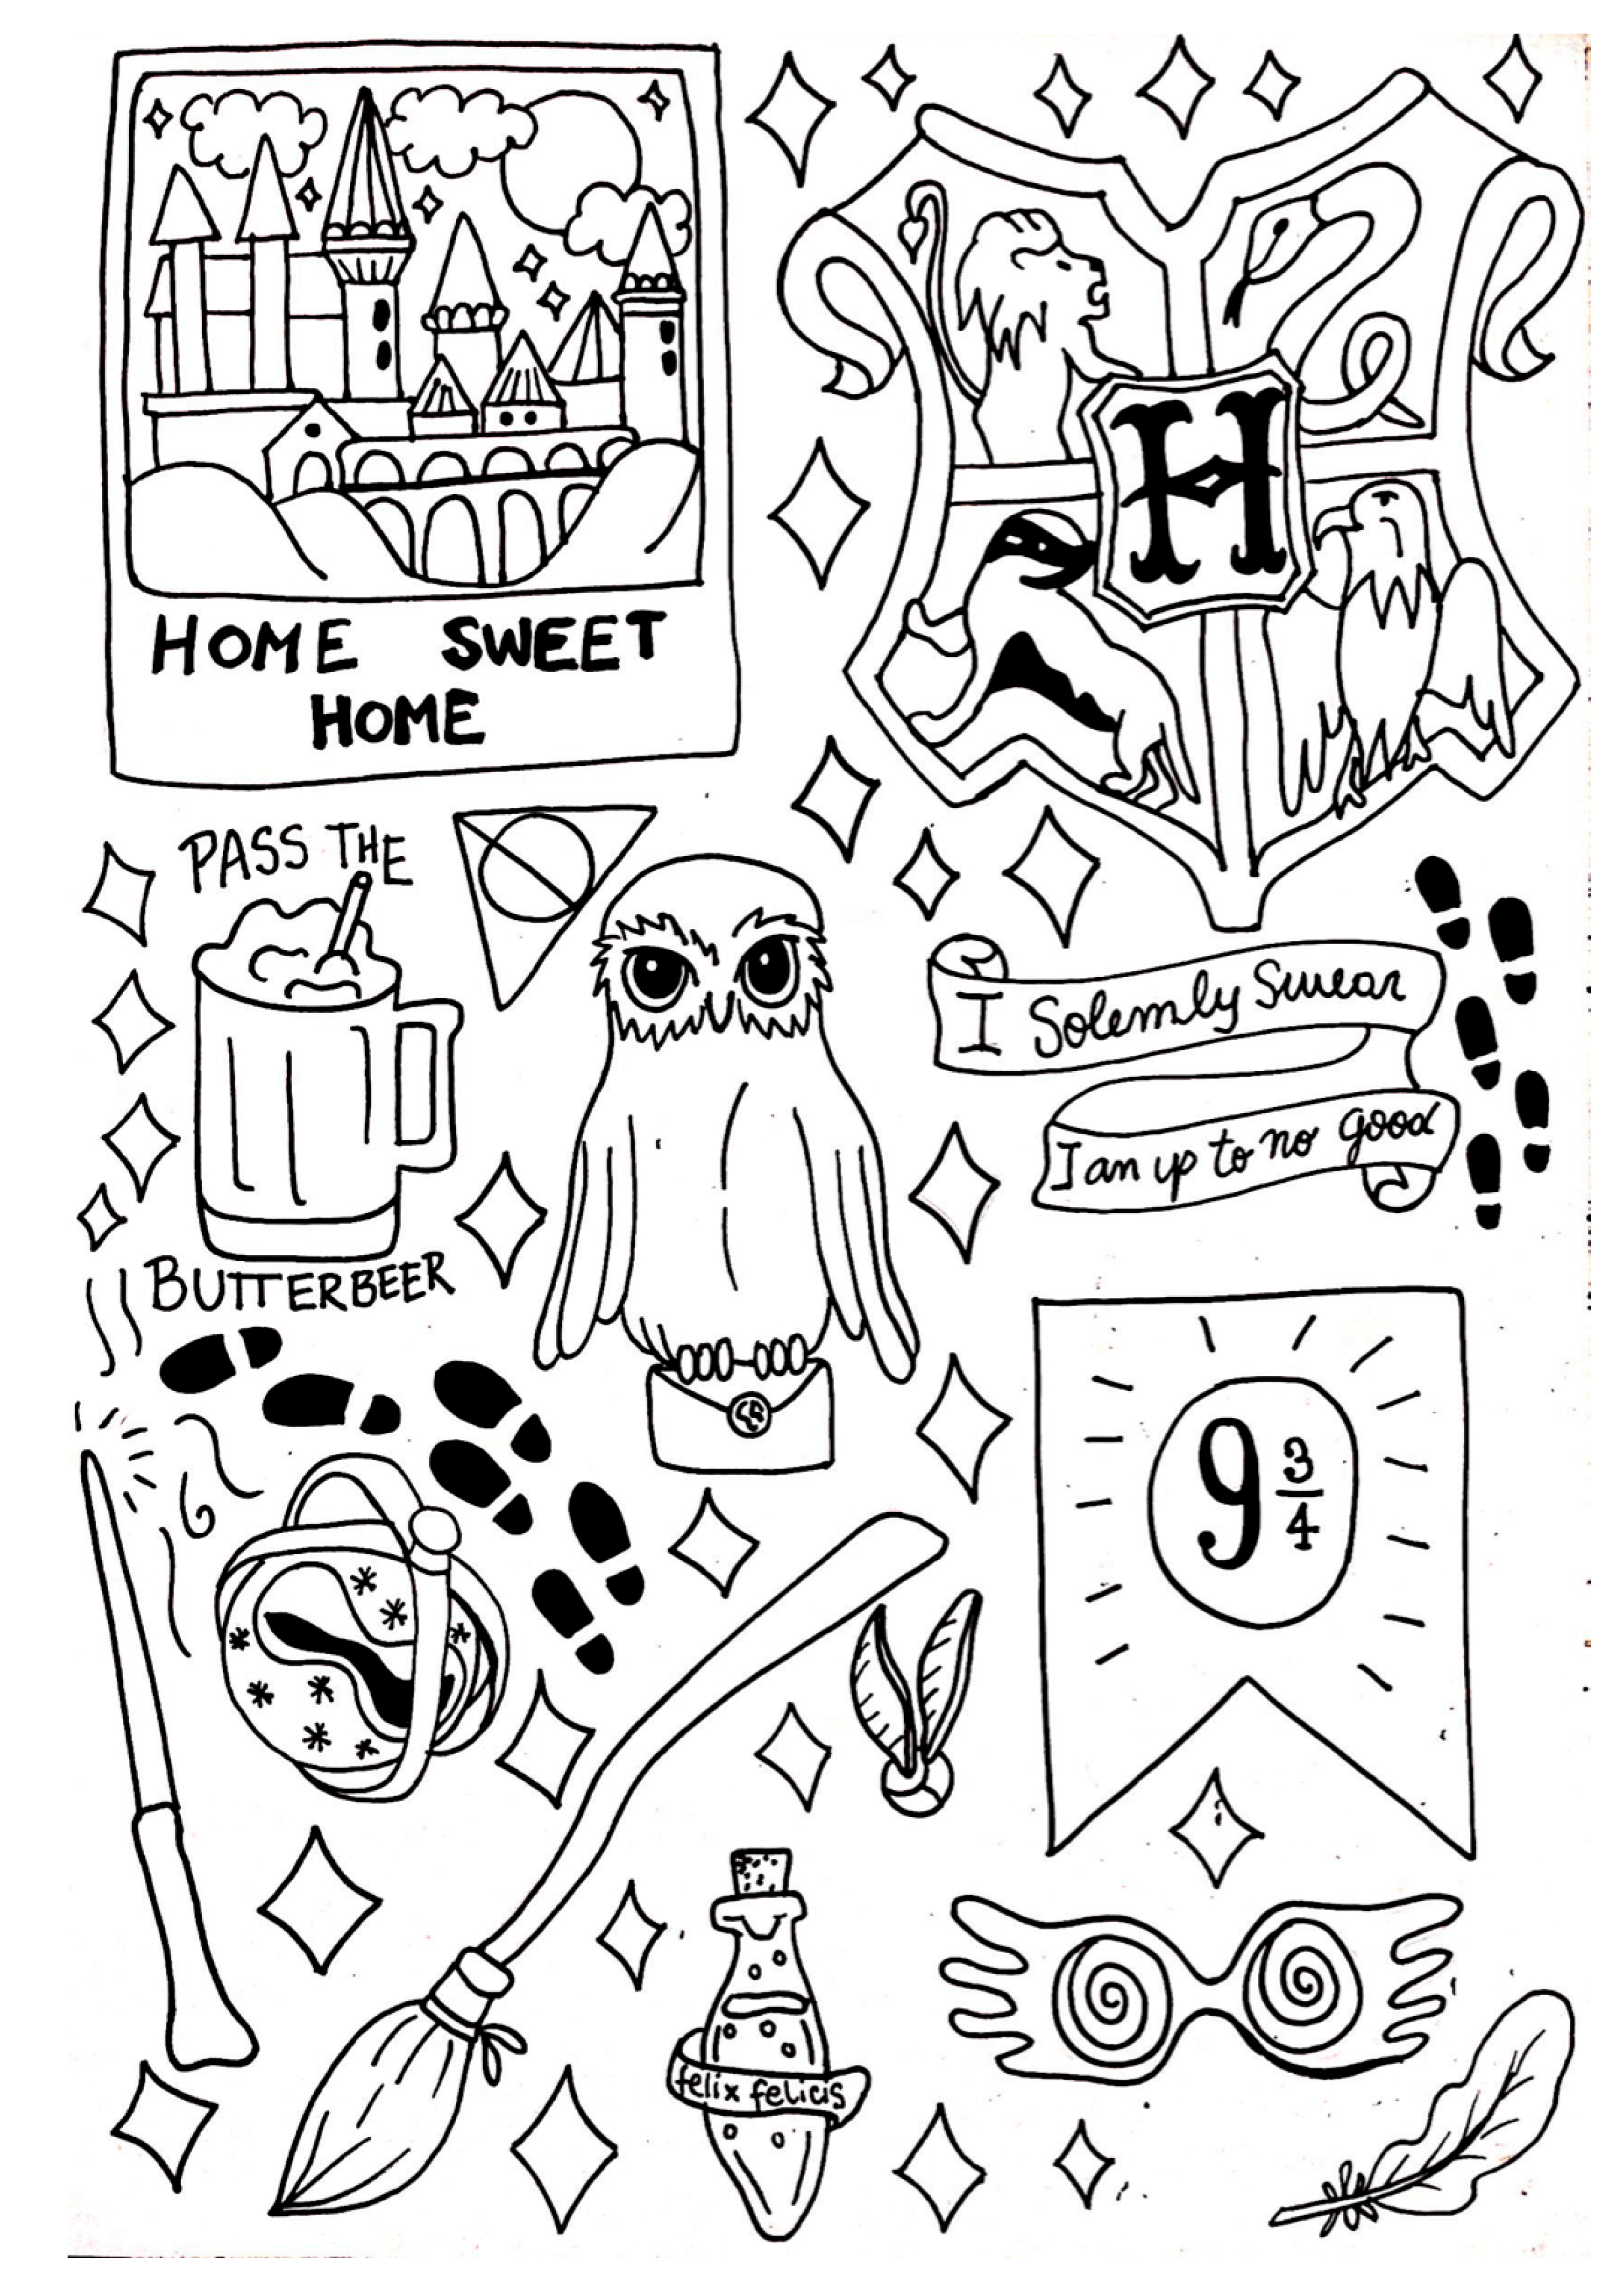 HOME SWEET
HOME
H
PASS THE
BUTTERBEER
I Solemnly Swear
I am up to no good
9 3/4
felix felicis